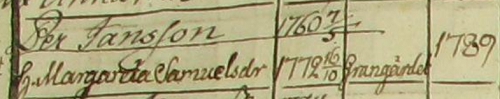 Per Jansson 1760 7/5
h. Margareta Samuelsdr 1772 16/10 Grangärdet 1789